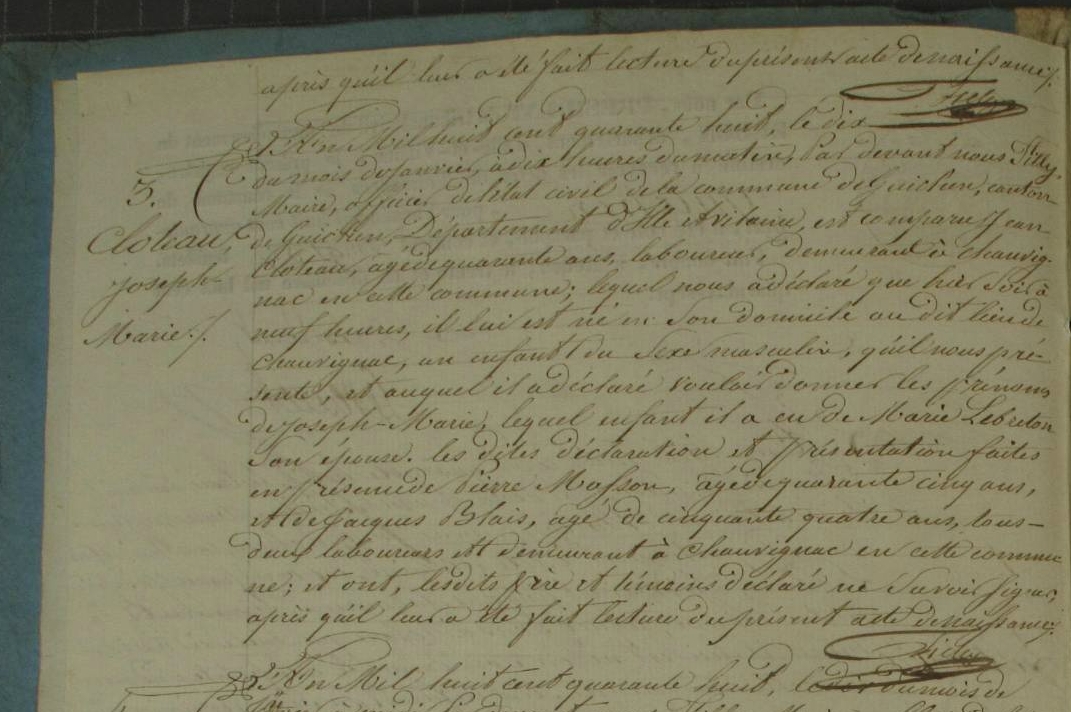 après qu'il leur a été fait lecture du présent acte de naissance./.
Tilly
L'An Mil huit cent quarante huit, le dix
du mois de Janvier, à dix heures du matin, Par devant nous Tilly,
Maire, officier de l'état civil de la commune de Guichen, canton
de Guichen, Département d'Ille et vilaine, est comparu Jean
Cloteau, agé de quarante ans, laboureur, demeurant à Chauvig-
nac en cette commune; lequel nous a déclaré que hier soir à
neuf heures, il lui est né en son domicile au dit lieu de
Chauvignac, un enfant du Sexe masculin, qu'il nous pré-
sente, et auquel il a déclaré vouloir donner les prénoms
de Joseph-Marie, lequel enfant il a eu de Marie Lebreton
Son épouse. les dites déclaration et présentation faites
en présence de Pierre Masson, âgé de quarante cinq ans,
et de Jacques Blais, agé de cinquante quatre ans, tous-
deux laboureurs et demeurant à Chauvignac en cette commu-
ne; et ont, lesdits père et témoins déclaré ne Savoir signer,
après qu'il leur a été fait lecture du présent acte de naissance./.
Tilly
L'An Mil huit cent quarante huit, le dix du mois de
3.
Cloteau,
Joseph-
Marie./.